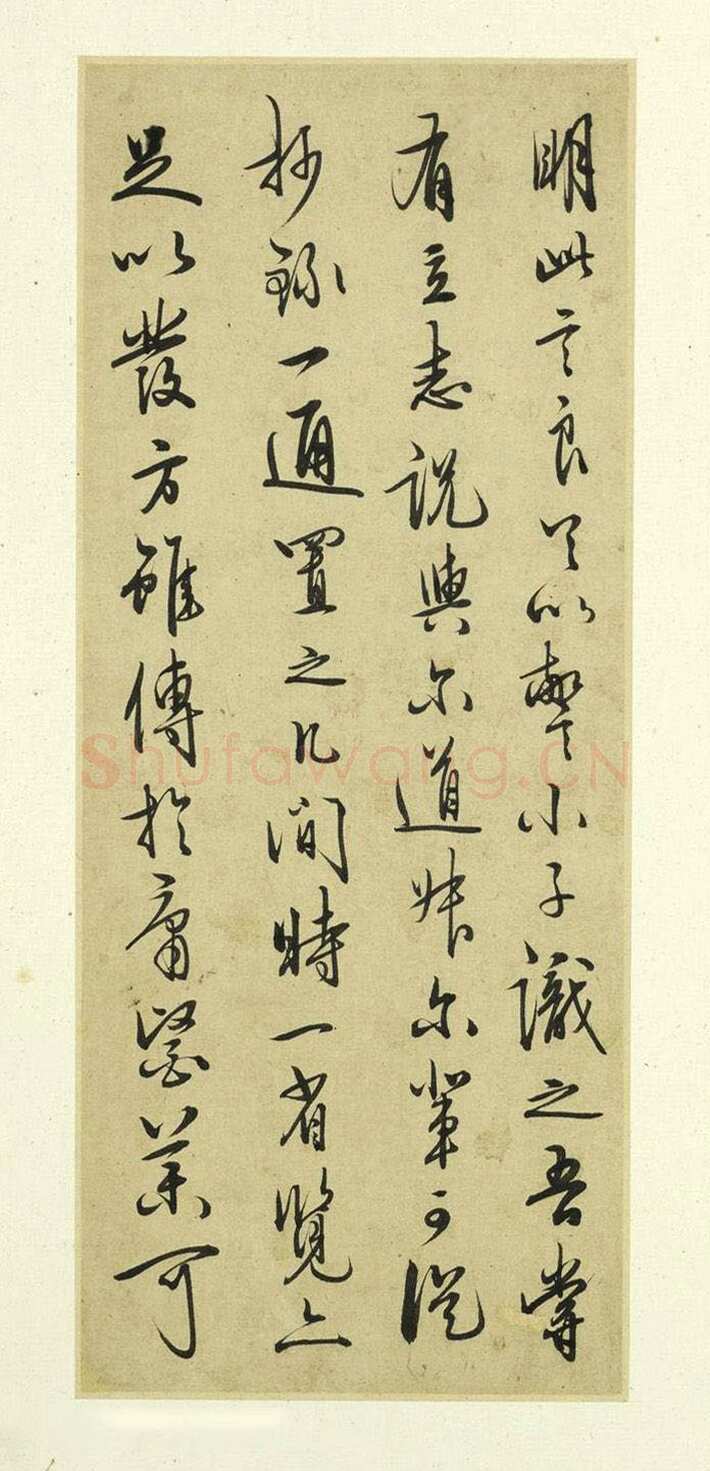 明此言良足以警小子識之吾嘗
有立志說與尔道叔尔輩可從
抄錄一通置之几間時一省覽亦
足以發方雖傳於庸醫藥可
Shufawang.CN